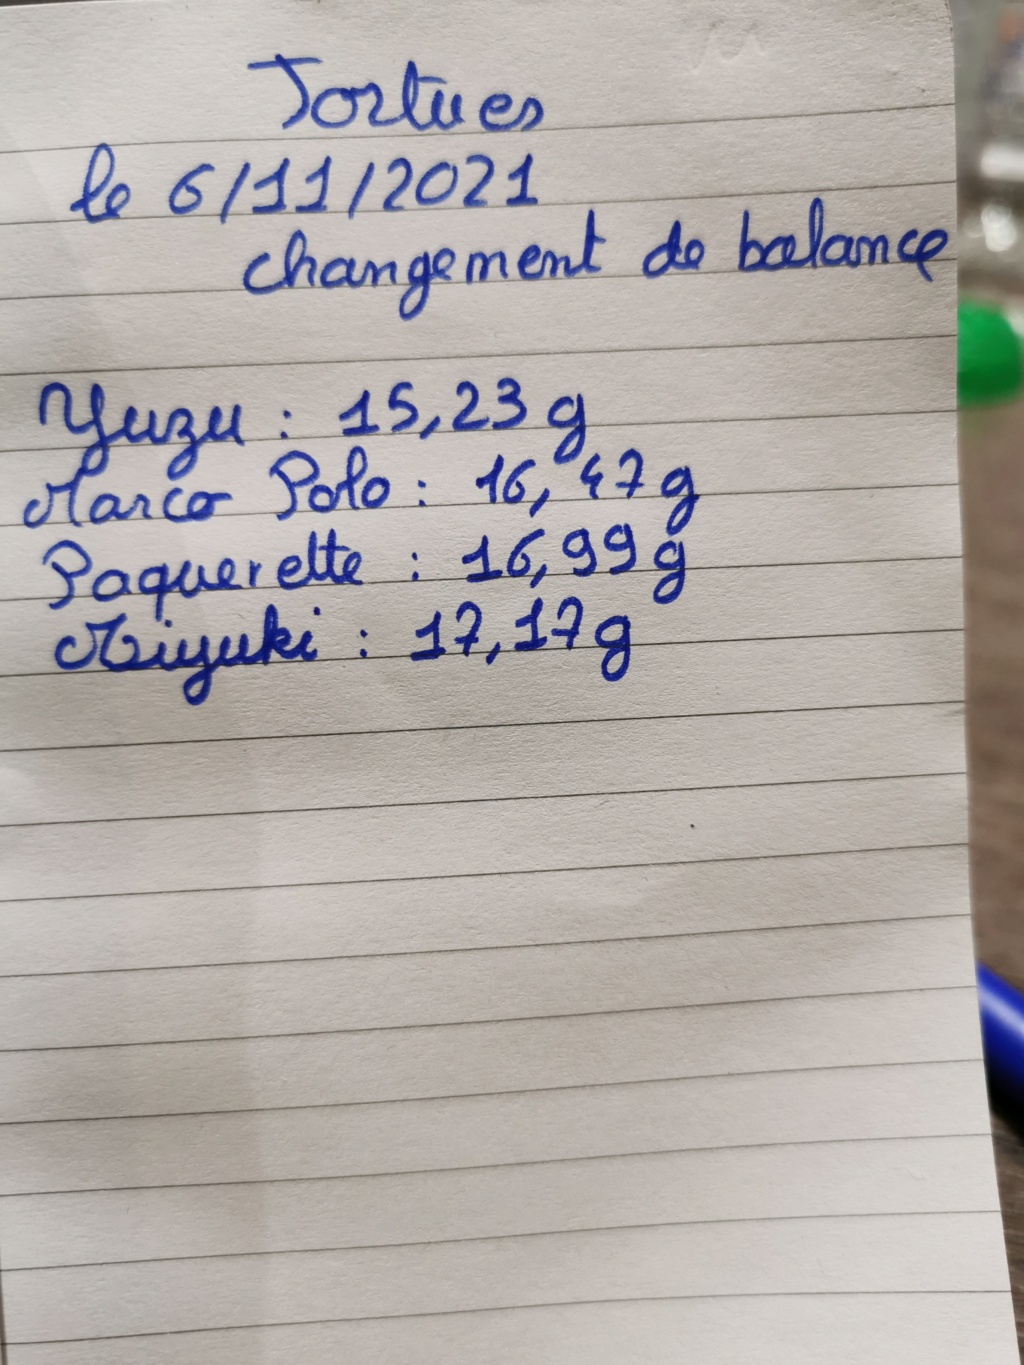 Tortues
le 6/11/2021
changement de balance
Yuzu : 15,23 g
Marco Polo : 16,47 g
Paquerette : 16,99 g
Miyuki : 17,17 g